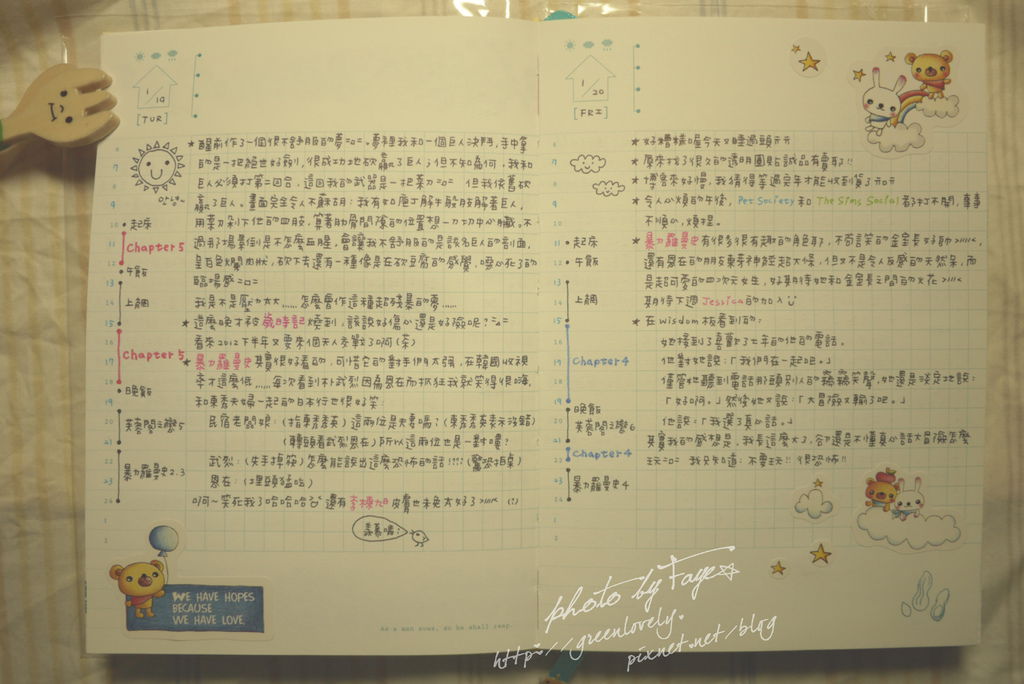 1/19
[TUR]
★醒前作了一個很不舒服的夢=o=。夢裡我和一個巨人決鬥，手中拿
的是一把絕世好劍，很成功地砍贏了巨人；但不知為何，我和
巨人必須打第二回合，這回我的武器是一把菜刀=o= 但我依舊砍
贏了巨人。畫面完全令人不蘇胡：我有如庖丁解牛般肢解著巨人，
用菜刀剁下他的四肢，算著肋骨間隙的位置想一刀切中心臟。不
過那場景倒是不怎麼血腥，會讓我不舒服的是該名巨人的剖面，
是白色爛肉狀，砍下去還有一種像是在砍豆腐的感覺，噁心死了的
臨場感=o=
我是不是壓力太大……怎麼會作這種超殘暴的夢……
★這麼晚才被歲時記燒到，該說好傷心還是好險呢？=o=
看來2012下半年又要來個天人交戰了啊(茶)
★暴力羅曼史其實很好看的，可惜它的對手們太強，在韓國收視
率才這麼低……每次看到朴武烈因為恩在而抓狂我就笑得很嗨，
和東秀夫婦一起的日本行也很好笑：
民宿老闆娘：(指東秀英秀)這兩位是夫妻嗎？(東秀英秀表示沒錯)
(轉頭看武烈恩在)所以這兩位也是一對嘍？
武烈：(失手掉筷)怎麼能說出這麼恐怖的話!!!!(驚恐掉桌)
恩在：(埋頭猛吃)
啊～笑死我了哈哈哈
還有李棟旭皮膚也未免太好了
羨慕嗎？
起床
Chapter 5
午飯
上網
Chapter 5
晚飯
芙蓉閣之戀5
暴力羅曼史2.3
WE HAVE HOPES
BECAUSE
WE HAVE LOVE.
As a man sows, so he shall reap.
1/20
[FRI]
★好糟糕喔今天又睡過頭
★原來找了很久的透明圓點誠品有賣耶!!
★博客來好慢，我猜得等過完年才能收到貨了
★令人心煩的午後，Pet Society和The Sims Social都打不開，事事
不順心，煩捏。
★暴力羅曼史有很多很有趣的角色耶，不苟言笑的金室長好帥
還有恩在的朋友東芽神經超大條，但又不是令人反感的天然呆，而
是超可愛的四次元女生，好期待她和金室長之間的火花
期待下週Jessica的加入
★在wisdom板看到的：
她接到了喜歡了七年的他的電話。
他對她說：「我們在一起吧。」
儘管她聽到電話那頭別人的竊竊笑聲，她還是淡定地說：
「好啊。」然後她又說：「大冒險又輸了吧。」
他說：「我選了真心話。」
其實我的感想是，我長這麼大了，卻還是不懂真心話大冒險怎麼
玩=o= 我只知道：不要玩!!很恐怖!!
起床
午飯
上網
Chapter 4
晚飯
芙蓉閣之戀6
Chapter 4
暴力羅曼史4
photo by Faye☆
http://greenlovely.
pixnet.net/blog